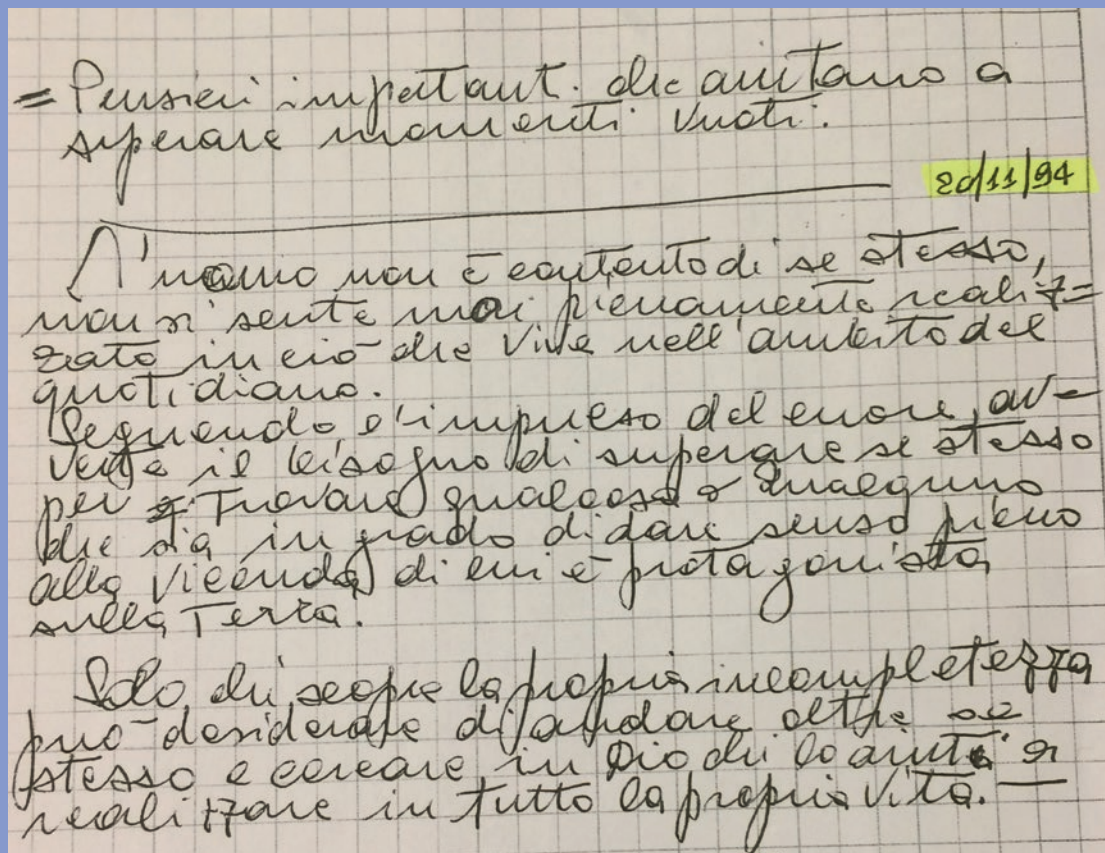 = Pensieri important. che aiutano a
superare momenti vuoti.
20/11/94
L'uomo non è contento di se stesso,
non si sente mai pienamente realiz=
zato in ciò che vive nell'ambito del
quotidiano.
Seguendo l'impulso del cuore, av-
verte il bisogno di superare se stesso
per trovare qualcosa o qualcuno
che sia in grado di dare senso pieno
alla vicenda di cui è protagonista
sulla Terra.
Solo chi scopre la propria incompletezza
può desiderare di andare oltre se
stesso e cercare in Dio chi lo aiuti a
realizzare in tutto la propria vita.